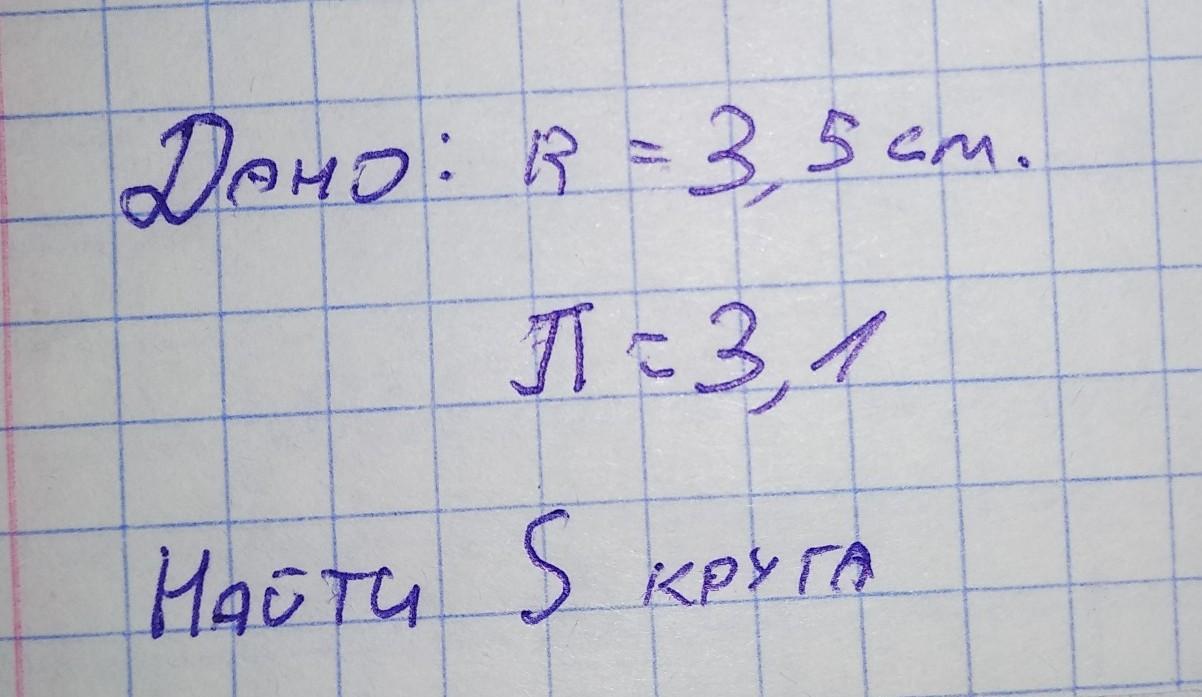 Дано: R = 3,5 см.
π = 3,1
Найти S круга